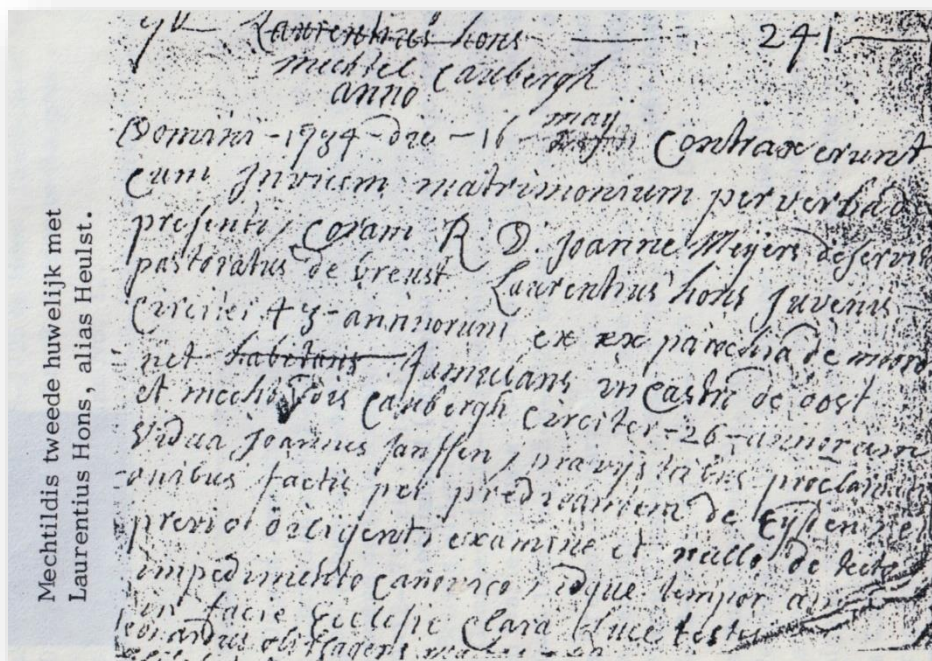 Mechtildis tweede huwelijk met
Laurentius Hons, alias Heulst.
Laurentius hons 241
mechtel Caubergh
anno
Domini - 1734 - die - 16 - may Contraxerunt
cum Invicem matrimonium per verba de
presenti, Coram R. D. Joanne Meijers deservi
pastoratus de breust Laurentius hons Juvenis
Circiter 43 - annorum ex ex parochia de
habetans famulans in Castri de oost
et mechtildis Caubergh Circiter - 26 - annorum
vidua Joannis Janssen, pravijs tribus proclamati
onibus factis per de Eysden, et
previo diligenti examine et nullo de tecto
impedimento Canonico, idque tempor
in facie Ecclesie Clara Luce testes